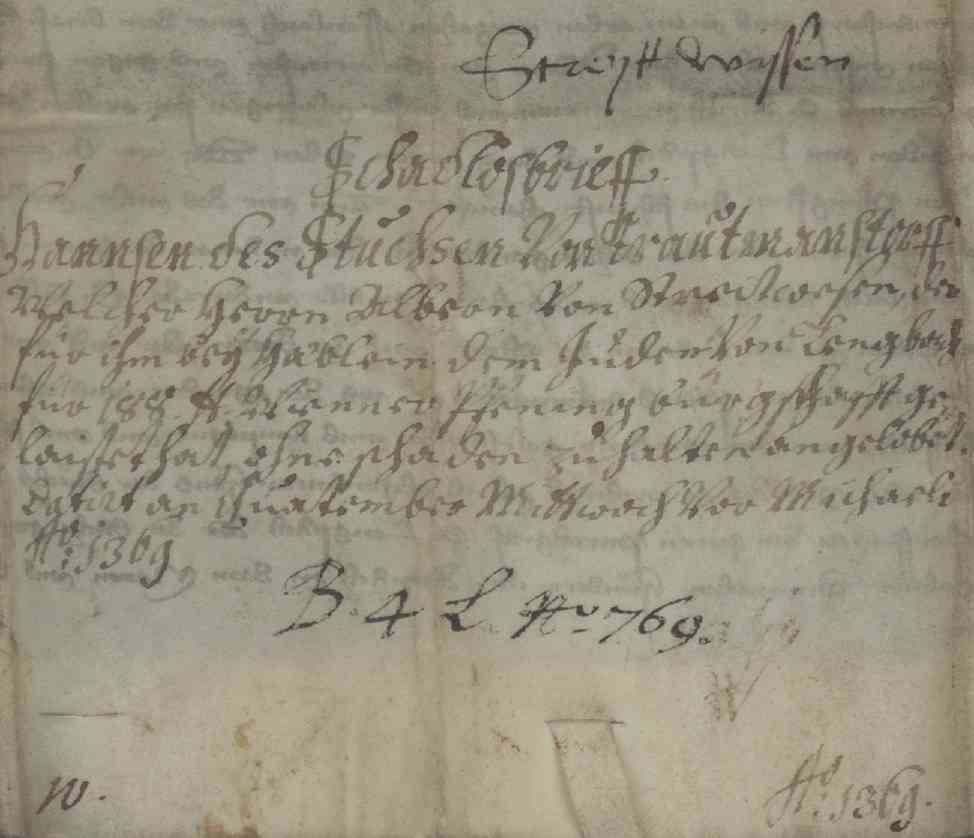 Streytt wyssen
Schadlosbrieff
Hannsen des Stuchsen Von Trautmanstorff
Welcher Herrn Albern Von Streitwesen, der
für ihm beÿ Häblein dem Juden Von
für 188 ℔ Wienner Pfening bürgschafft ge„
laistet hat, ohne schaden zu halten angelobet.
Datirt an Quattember Mittwoch Vor Michaeli
Aō: 1369
B. 4 L. No 769.
W
10.
Aō: 1369.